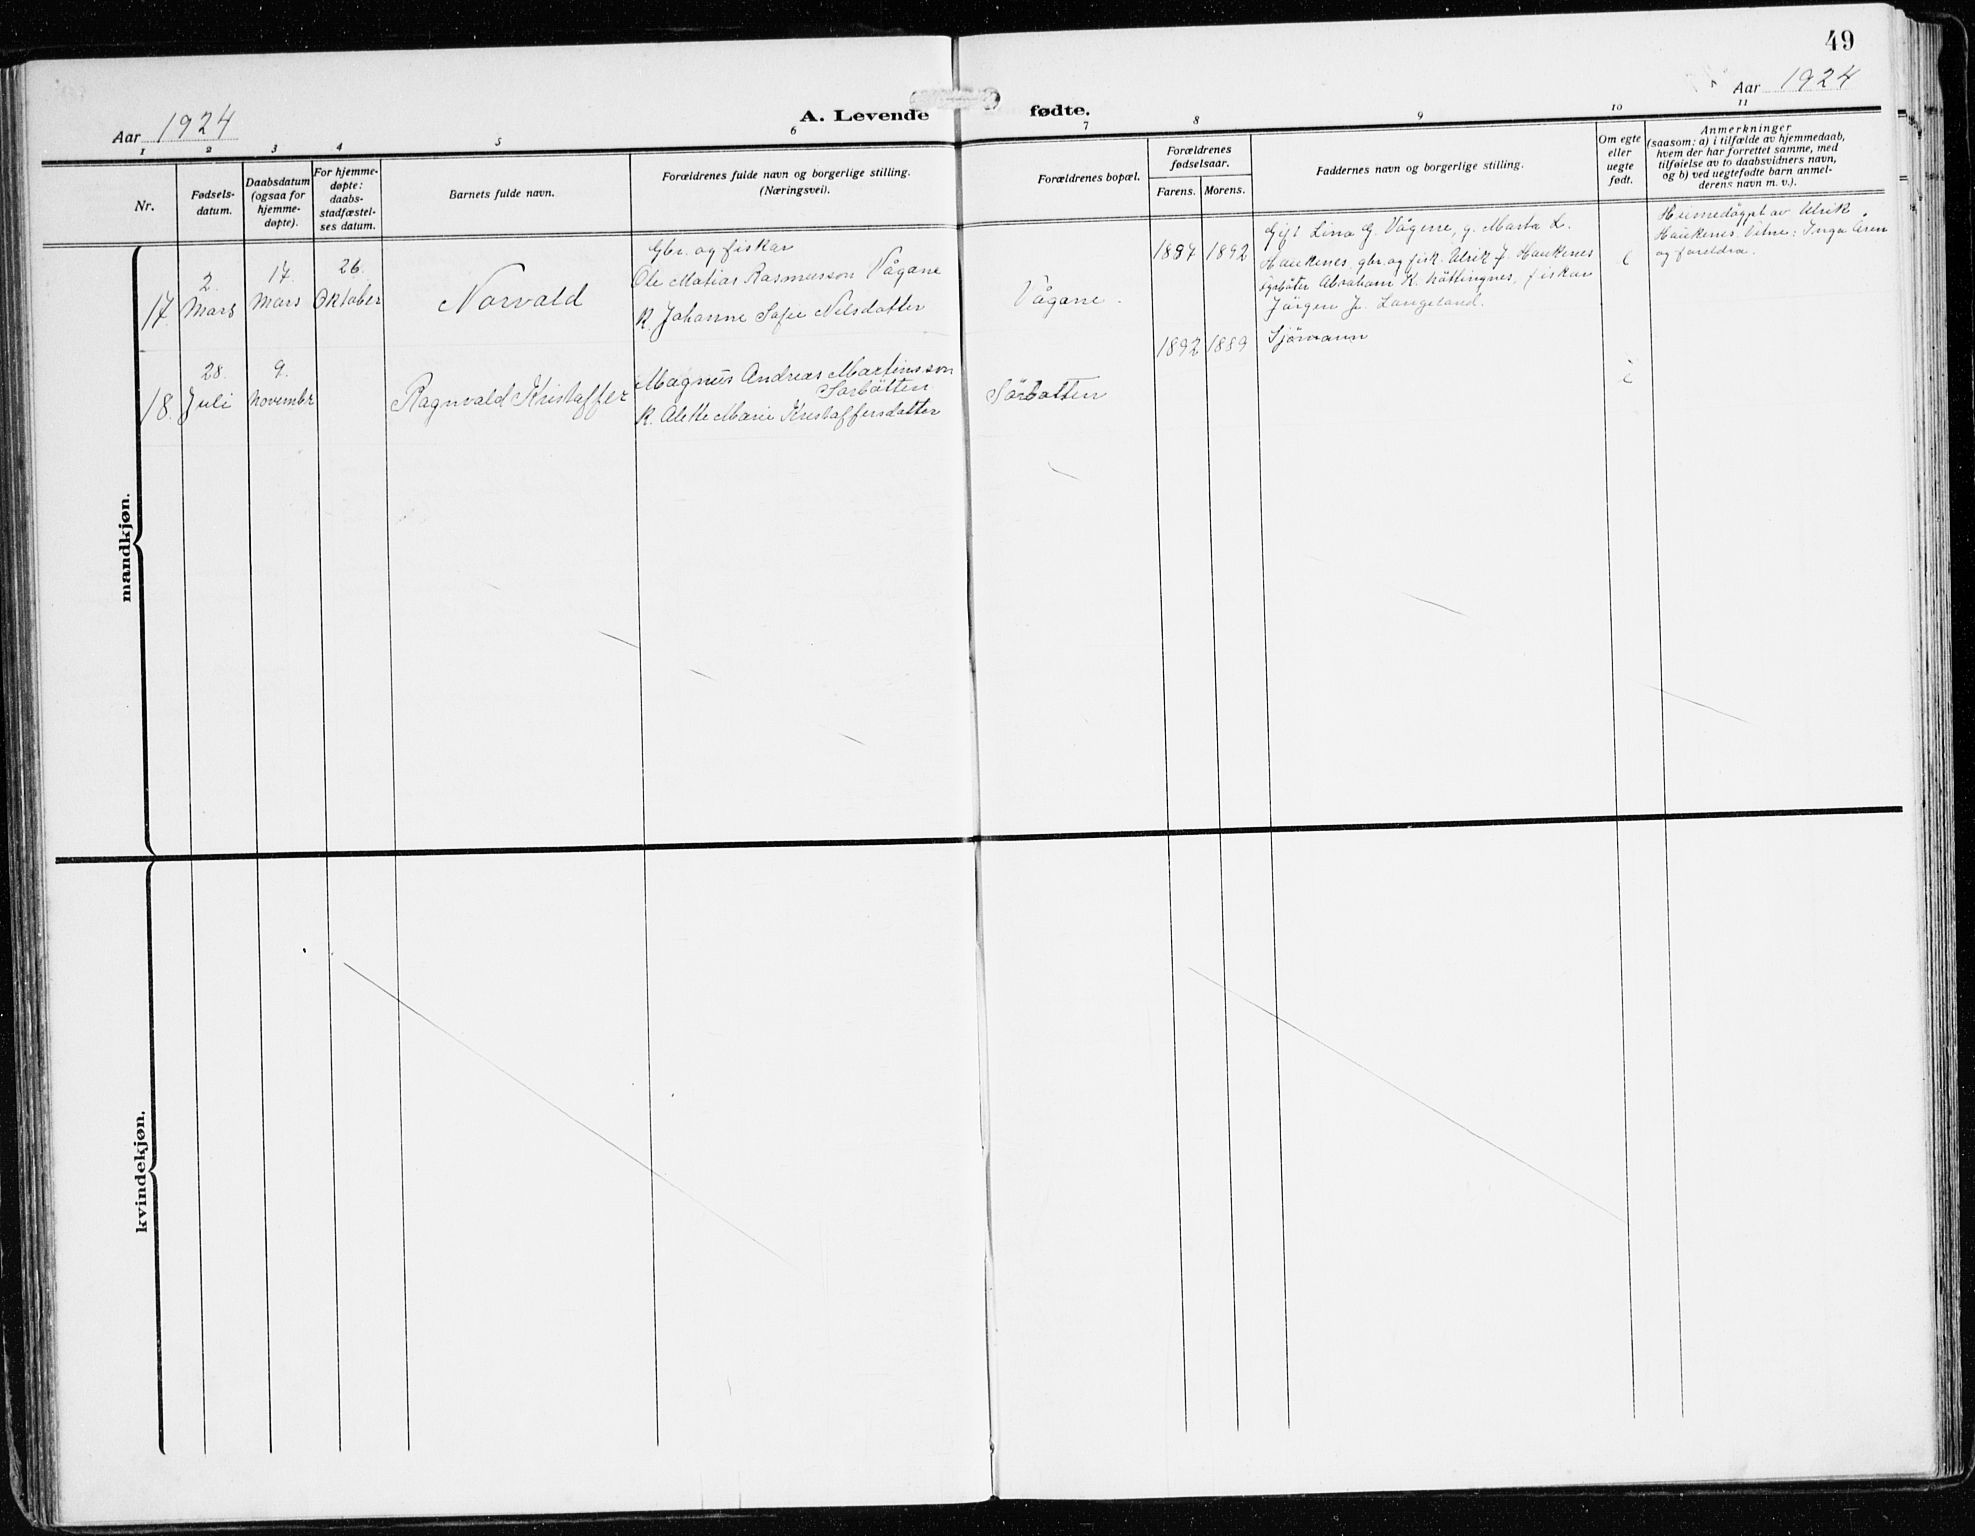 49
Aar 1924
A. Levende fødte.
Aar 1924
1 2 3 4 5 6 7 8 9 10 11
Nr.
Fødsels-
datum.
Daabsdatum
(ogsaa for
hjemme-
døpte).
For hjemme-
døpte:
daabs-
stadfæstel-
ses datum.
Barnets fulde navn.
Forældrenes fulde navn og borgerlige stilling.
(Næringsvei).
Forældrenes bopæl.
Forældrenes
fødselsaar.
Farens. Morens.
Faddernes navn og borgerlige stilling.
Om egte
eller
uegte
født.
Anmerkninger
(saasom: a) i tilfælde av hjemmedaab,
hvem der har forrettet samme, med
tilføielse av to daabsvidners navn,
og b) ved uegtefødte barn anmel-
derens navn m. v.).
mandkjøn.
17.
2.
Mars
17.
Mars
26.
Oktober
Norvald
Gbr. og fiskar
Ole Matias Rasmusson Vågane
K. Johanne Sofie Nilsdatter
Vågane.
1887 1892
Gift Lina G. Vågene, g. Marta L.
Haukenes, gbr. og fisk. Ulrik J. Haukenes
Abraham K. Nöttingnes, fiskar
Jörgen J. Langeland.
e
Heimedöypt av Ulrik
Haukenes. Vitne: Inga
og foreldra.
18.
28.
Juli
9.
Novembr
Ragnvald Kristaffer
Magnus Andreas Martinsson
Sörbötten
K. Alette Marie Kristaffersdatter
Sörbotten
1892 1889
Sjömann
e
kvindekjøn.